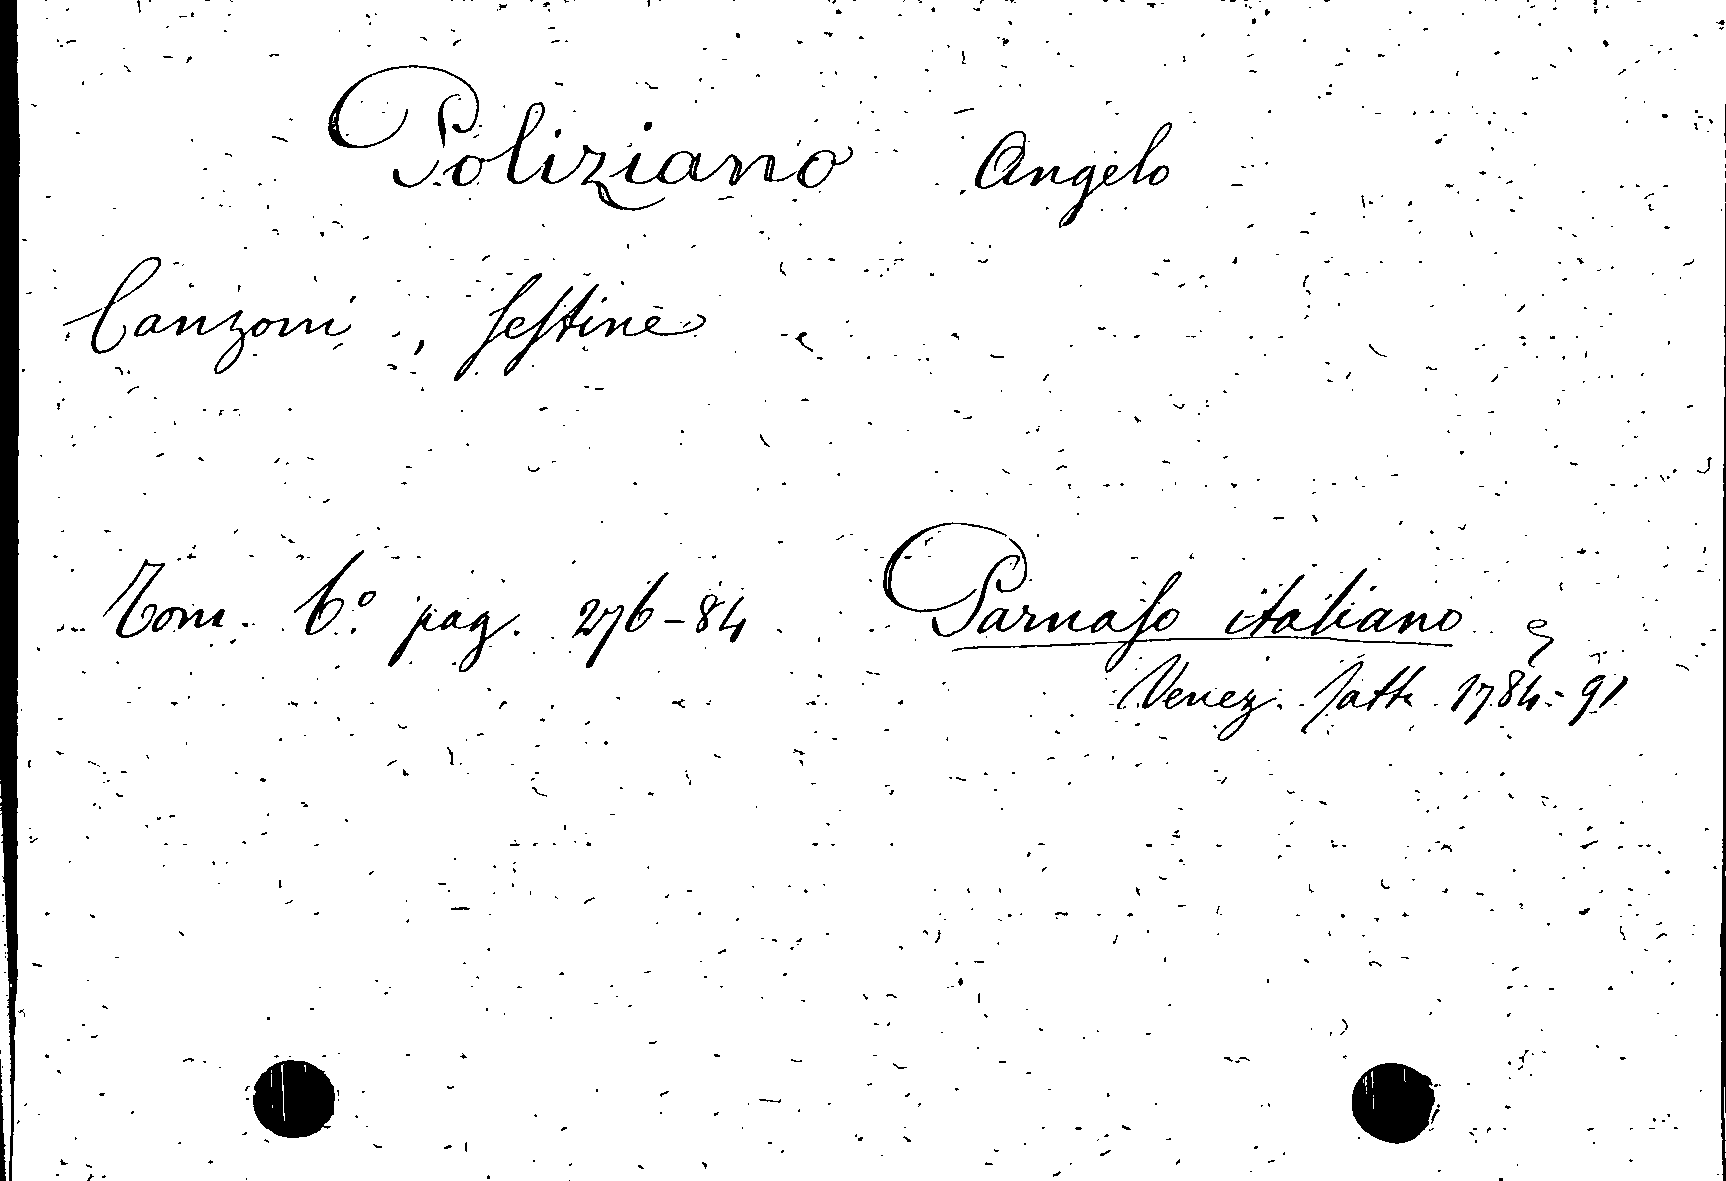 Poliziano Angelo
Canzoni, sestine
Tom. 6º pag. 276-84 Parnaso italiano
Venez. Zatta 1784-91